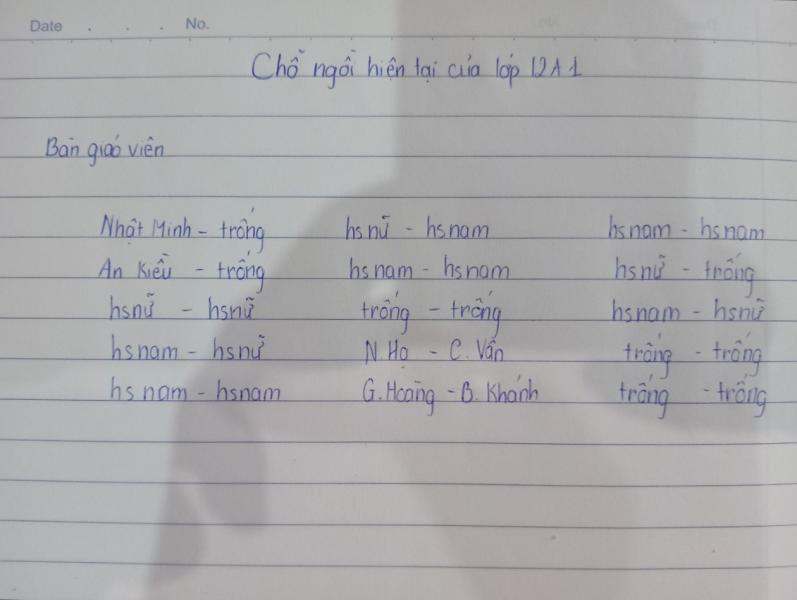 Date . . . No.
Chỗ ngồi hiện tại của lớp 12A1
Bàn giáo viên
Nhật Minh - trống hs nữ - hs nam hs nam - hs nam
An Kiều - trống hs nam - hs nam hs nữ - trống
hs nữ - hs nữ trống - trống hs nam - hs nữ
hs nam - hs nữ N. Họ - C. Vấn trống - trống
hs nam - hs nam G. Hoàng - B. Khánh trống - trống